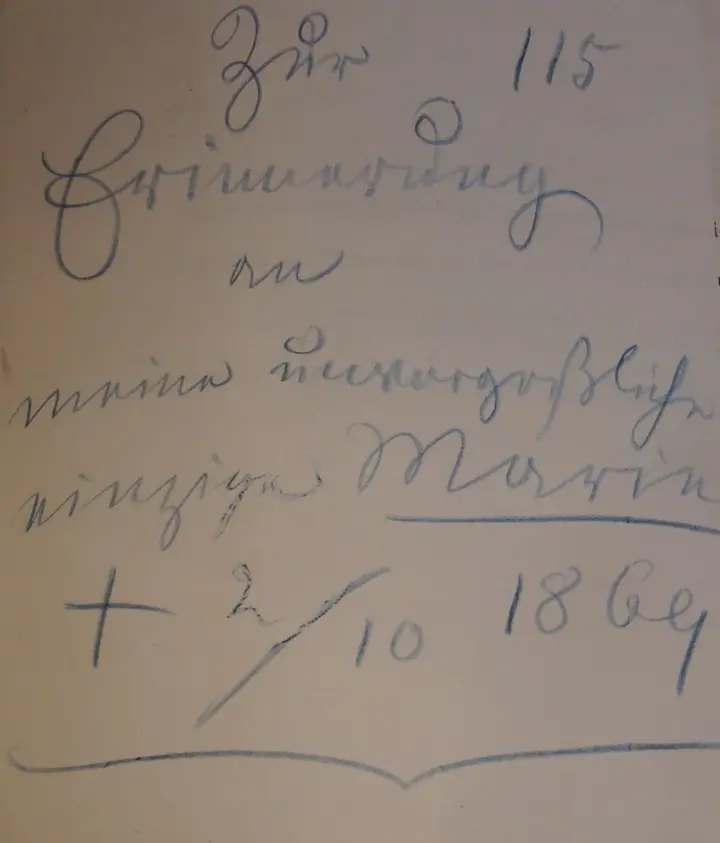 Zur 115
Erinnerung
an
meine unvergeßliche
einzige Marie
+ 2/10 1869